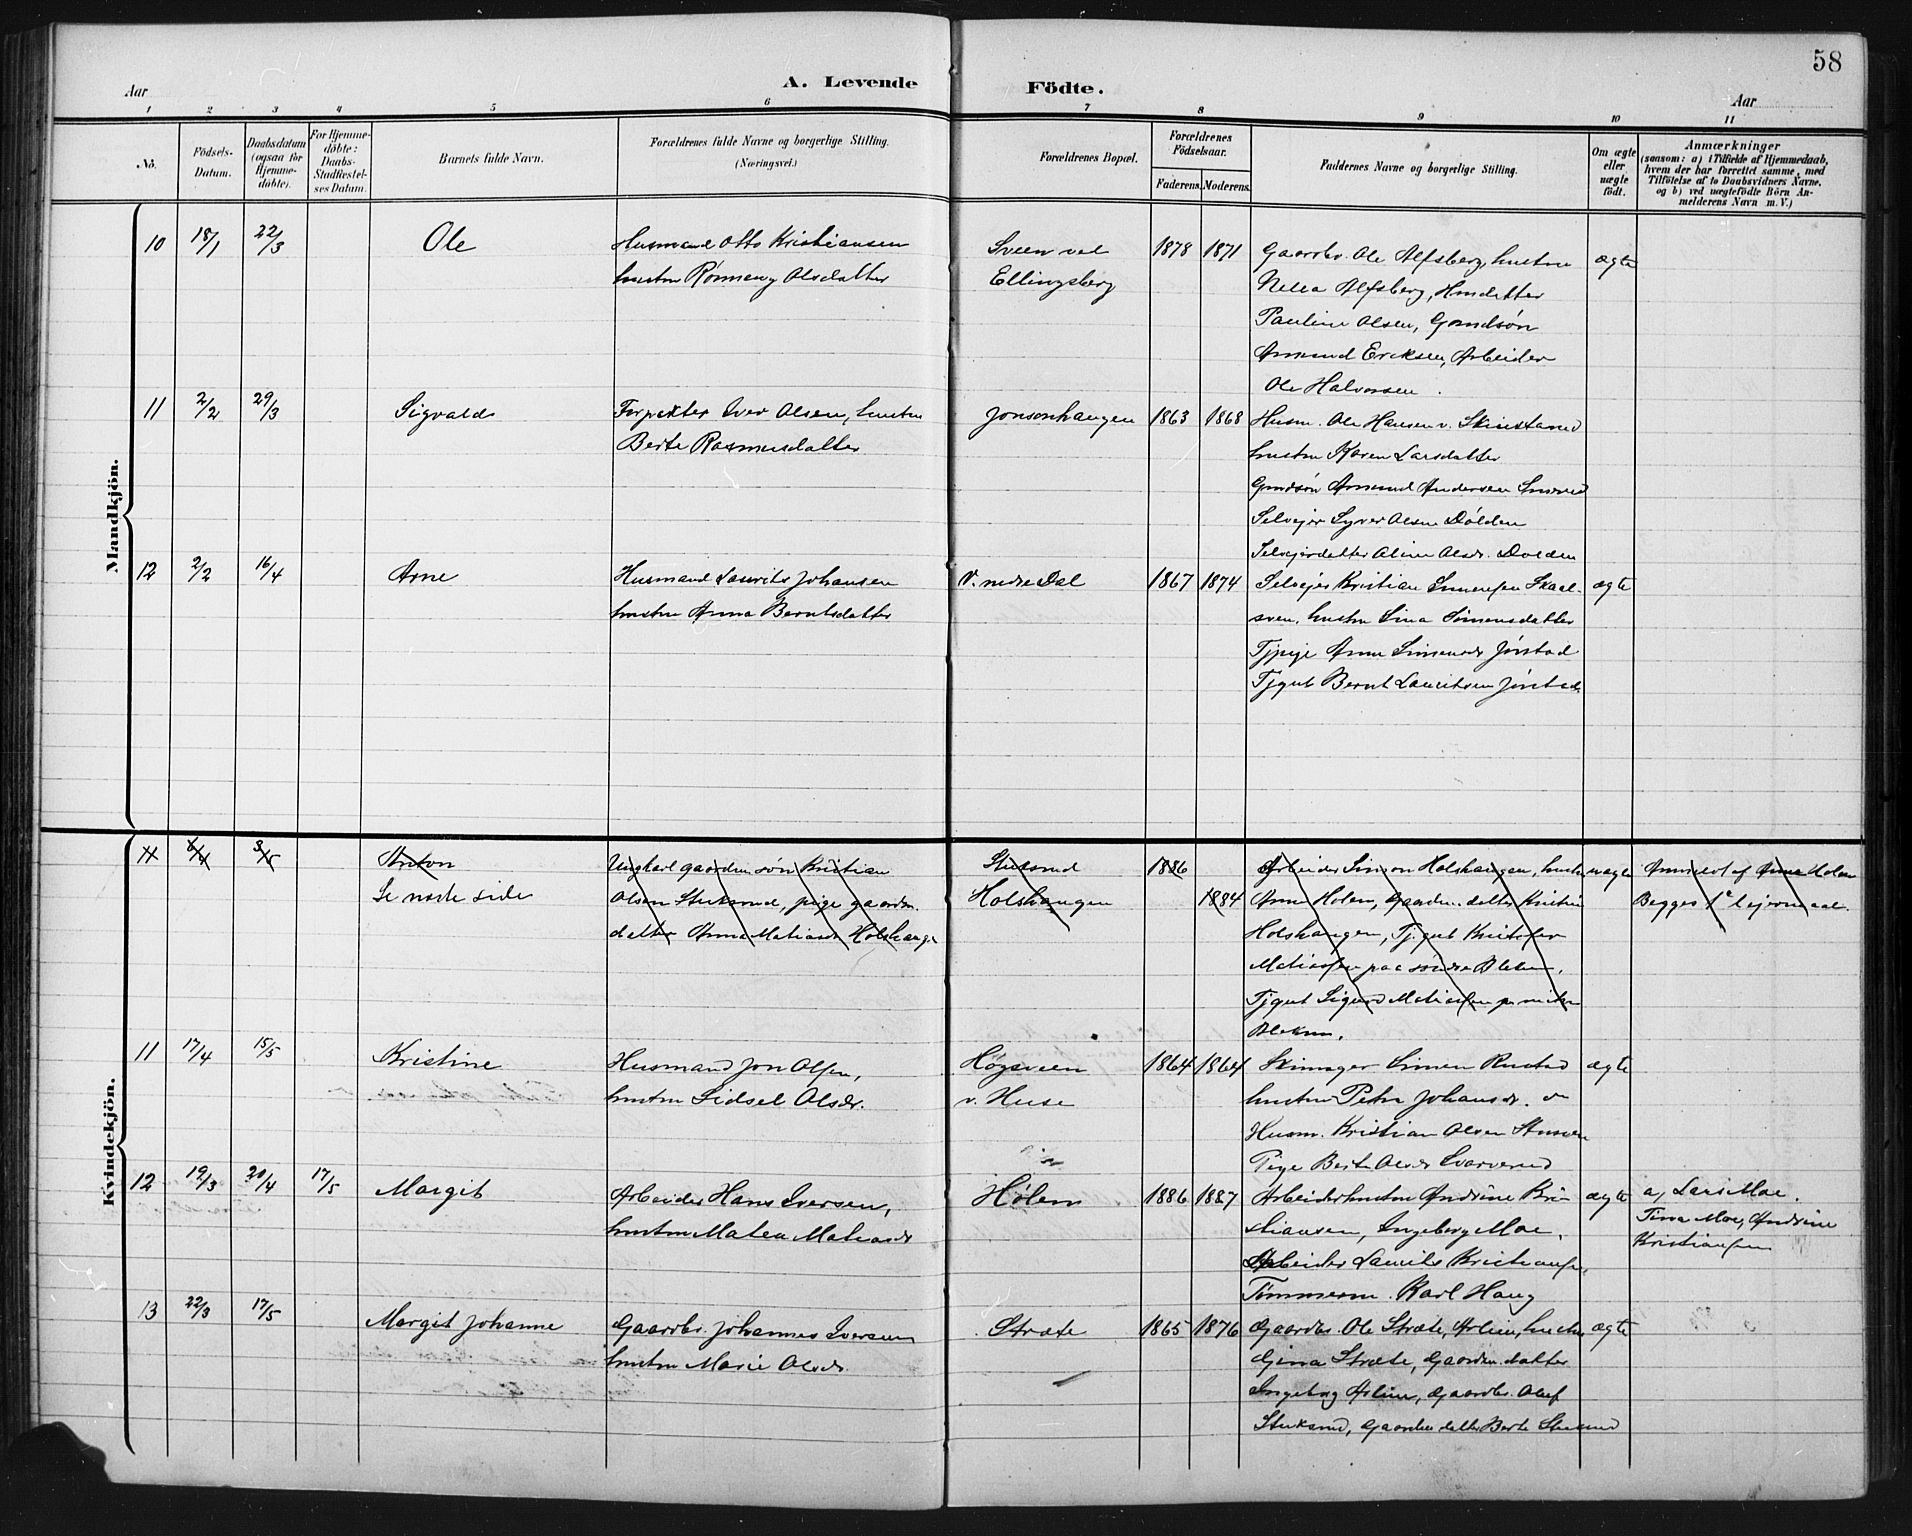 58
A. Levende Födte.
Aar Aar
1 2 3 4 5 6 7 8 9 10 11
No.
Födsels-
Datum.
Daabsdatum
(ogsaa for
Hjemme-
döbte).
For Hjemme-
döbte:
Daabs-
Stadfestel-
ses Datum.
Barnets fulde Navn.
Forældrenes fulde Navne og borgerlige Stilling.
(Næringsvei.)
Forældrenes Bopæl.
Forældrenes
Födselsaar.
Faderens. Moderens.
Faddernes Navne og borgerlige Stilling.
Om ægte
eller
uægte
födt.
Anmærkninger
(saasom: a) i Tilfælde af Hjemmedaab,
hvem der har forrettet samme, med
Tilföielse af to Daabsvidners Navne,
og b) ved uægtefödte Börn An-
melderens Navn m. V.)
Mandkjön.
10 18/1 22/3 Ole
Husmand Otto Kristiansen
hustru Rønnaug Olsdatter
Sveen ved
Ellingsberg
1878 1871
Gaardbr. Ole Alfsberg, hustru
Nella Alfsberg, Hmdatter
Pauline Olsen, Gmndsøn
Amund Ericksen, Arbeider
Ole Halvorsen.
ægte
11 2/2 29/3 Sigvald
Forpakter Iver Olsen, hustru
Berte Rasmusdatter
Jonsonhaugen
1863 1868
Husm. Ole Hansen v. Skinstanrud
hustru Karen Larsdatter
Gmdsøn Amund Andersen
Selvejer Syver Olsen Dølden
Selvejerdatter Oline Olsdr. Dolden
12 2/2 16/4 Arne
Husmand Laurits Johansen
hustru Anna Berntsdatter
V. nedre Dal
1867 1874
Selvejer Kristian Simensen Skaal-
sveen, hustru Lina Simensdatter
Tjpige Anne Simensdr Jørstad
Tjgut Bernt Lauritsen Jørstad
ægte
Kvindekjön.
11 6/4 3/5 Anton
Se neste side
Ungkarl gaardm.søn Kristian
Olsen Stuksrud, pige gaardm.
datter Anne Matiasdr Holshaugen
Stuksrud
Holshaugen
1886
1884
Arbeider Simon Holshaugen, hustru
Anne Holen, Gaardm. datter Kristine
Holshaugen, Tj.gut Kristofer
Matiassen paa søndre Bleken,
Tjgut Sigurd Matiassen p. nedre
Bleken.
uægte
Anmeldt af Anne Holen
Begges 1e lejermaal.
11 17/4 15/5 Kristine
Husmand Jon Olsen,
hustru Sidsel Olsdr.
Høgsveen
v. Huse
1864 1864
Skimager Simen Rustad
hustru Petra Johansdr.
Husm. Kristian Olsen
Pige Berte Olsdr Svarverud
ægte
12 19/3 20/4 17/5 Margit
Arbeider Hans Iversen,
hustru Matea Matiasdr
Hølen
1886 1887
Arbeiderhustru Andrine Kri-
stiansen, Ingeborg Moe,
Arbeider Laurits Kristiansen,
Tømmerm. Karl Haug
ægte
a, Lars Moe.
Tina Moe, Andrine
Kristiansen
13 22/3 17/5 Margit Johanne
Gaardbr. Johannes Iversen
hustru Marie Olsdr.
Stræte
1865 1876
Gaardbr. Ole Stræte, hustru
Gina Stræte, Gaardm. datter
Ingeborg, Gaardbr. Oluf
Stuksrud, Gaardm. datter Berte Stuksrud
ægte